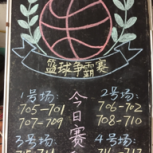 篮球争霸赛
今日赛
1号场:
705-701
707-709
2号场:
706-702
708-710
3号场:
4号场: